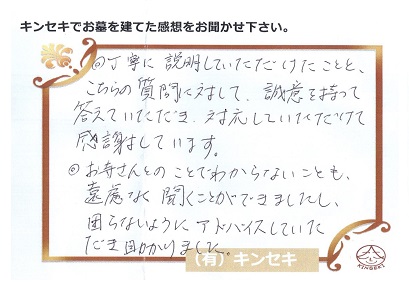 キンセキでお墓を建てた感想をお聞かせ下さい。
◎丁寧に説明していただけたことと、
こちらの質問に対して、誠意を持って
答えていただき、対応していただけて
感謝しています。
◎お寺さんとのことでわからないことも、
遠慮なく聞くことができましたし、
困らないようにアドバイスしていた
だき助かりました。
（有）キンセキ
KINSEKI